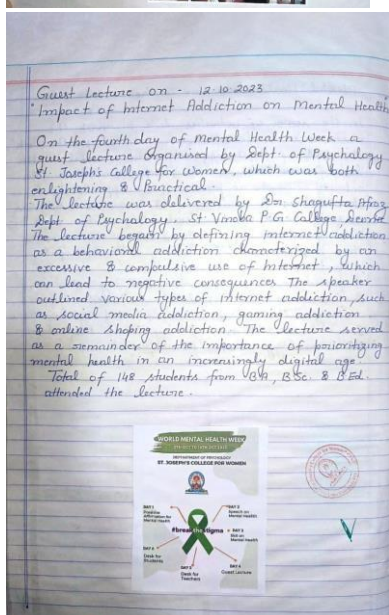 Guest Lecture on - 12-10-2023
"Impact of Internet Addiction on Mental Health"
On the fourth day of Mental Health Week a
guest lecture Organised by Dept. of Psychology
St. Joseph's College for Women, which was both
enlightening & Practical.
The lecture was delivered by Dr. Shagufta Afroz
Dept of Psychology, St Vinoba P G College
The lecture began by defining internet addiction
as a behavioral addiction characterized by an
excessive & compulsive use of Internet, which
can lead to negative consequences The speaker
outlined various types of internet addiction, such
as social media addiction, gaming addiction
& online shoping addiction. The lecture served
as a remainder of the importance of prioritizing
mental health in an increasingly digital age.
Total of 148 students from BA, BSc. & B Ed.
attended the lecture.
WORLD MENTAL HEALTH WEEK
DEPARTMENT OF PSYCHOLOGY
ST. JOSEPH'S COLLEGE FOR WOMEN
DAY 1
Positive
Affirmation for
Mental Health
DAY 2
Speech on
Mental Health
#break the stigma
DAY 3
Skit on
Mental Health
Desk for
Students
DAY 4
Guest Lecture
DAY 5
Desk for
Teachers